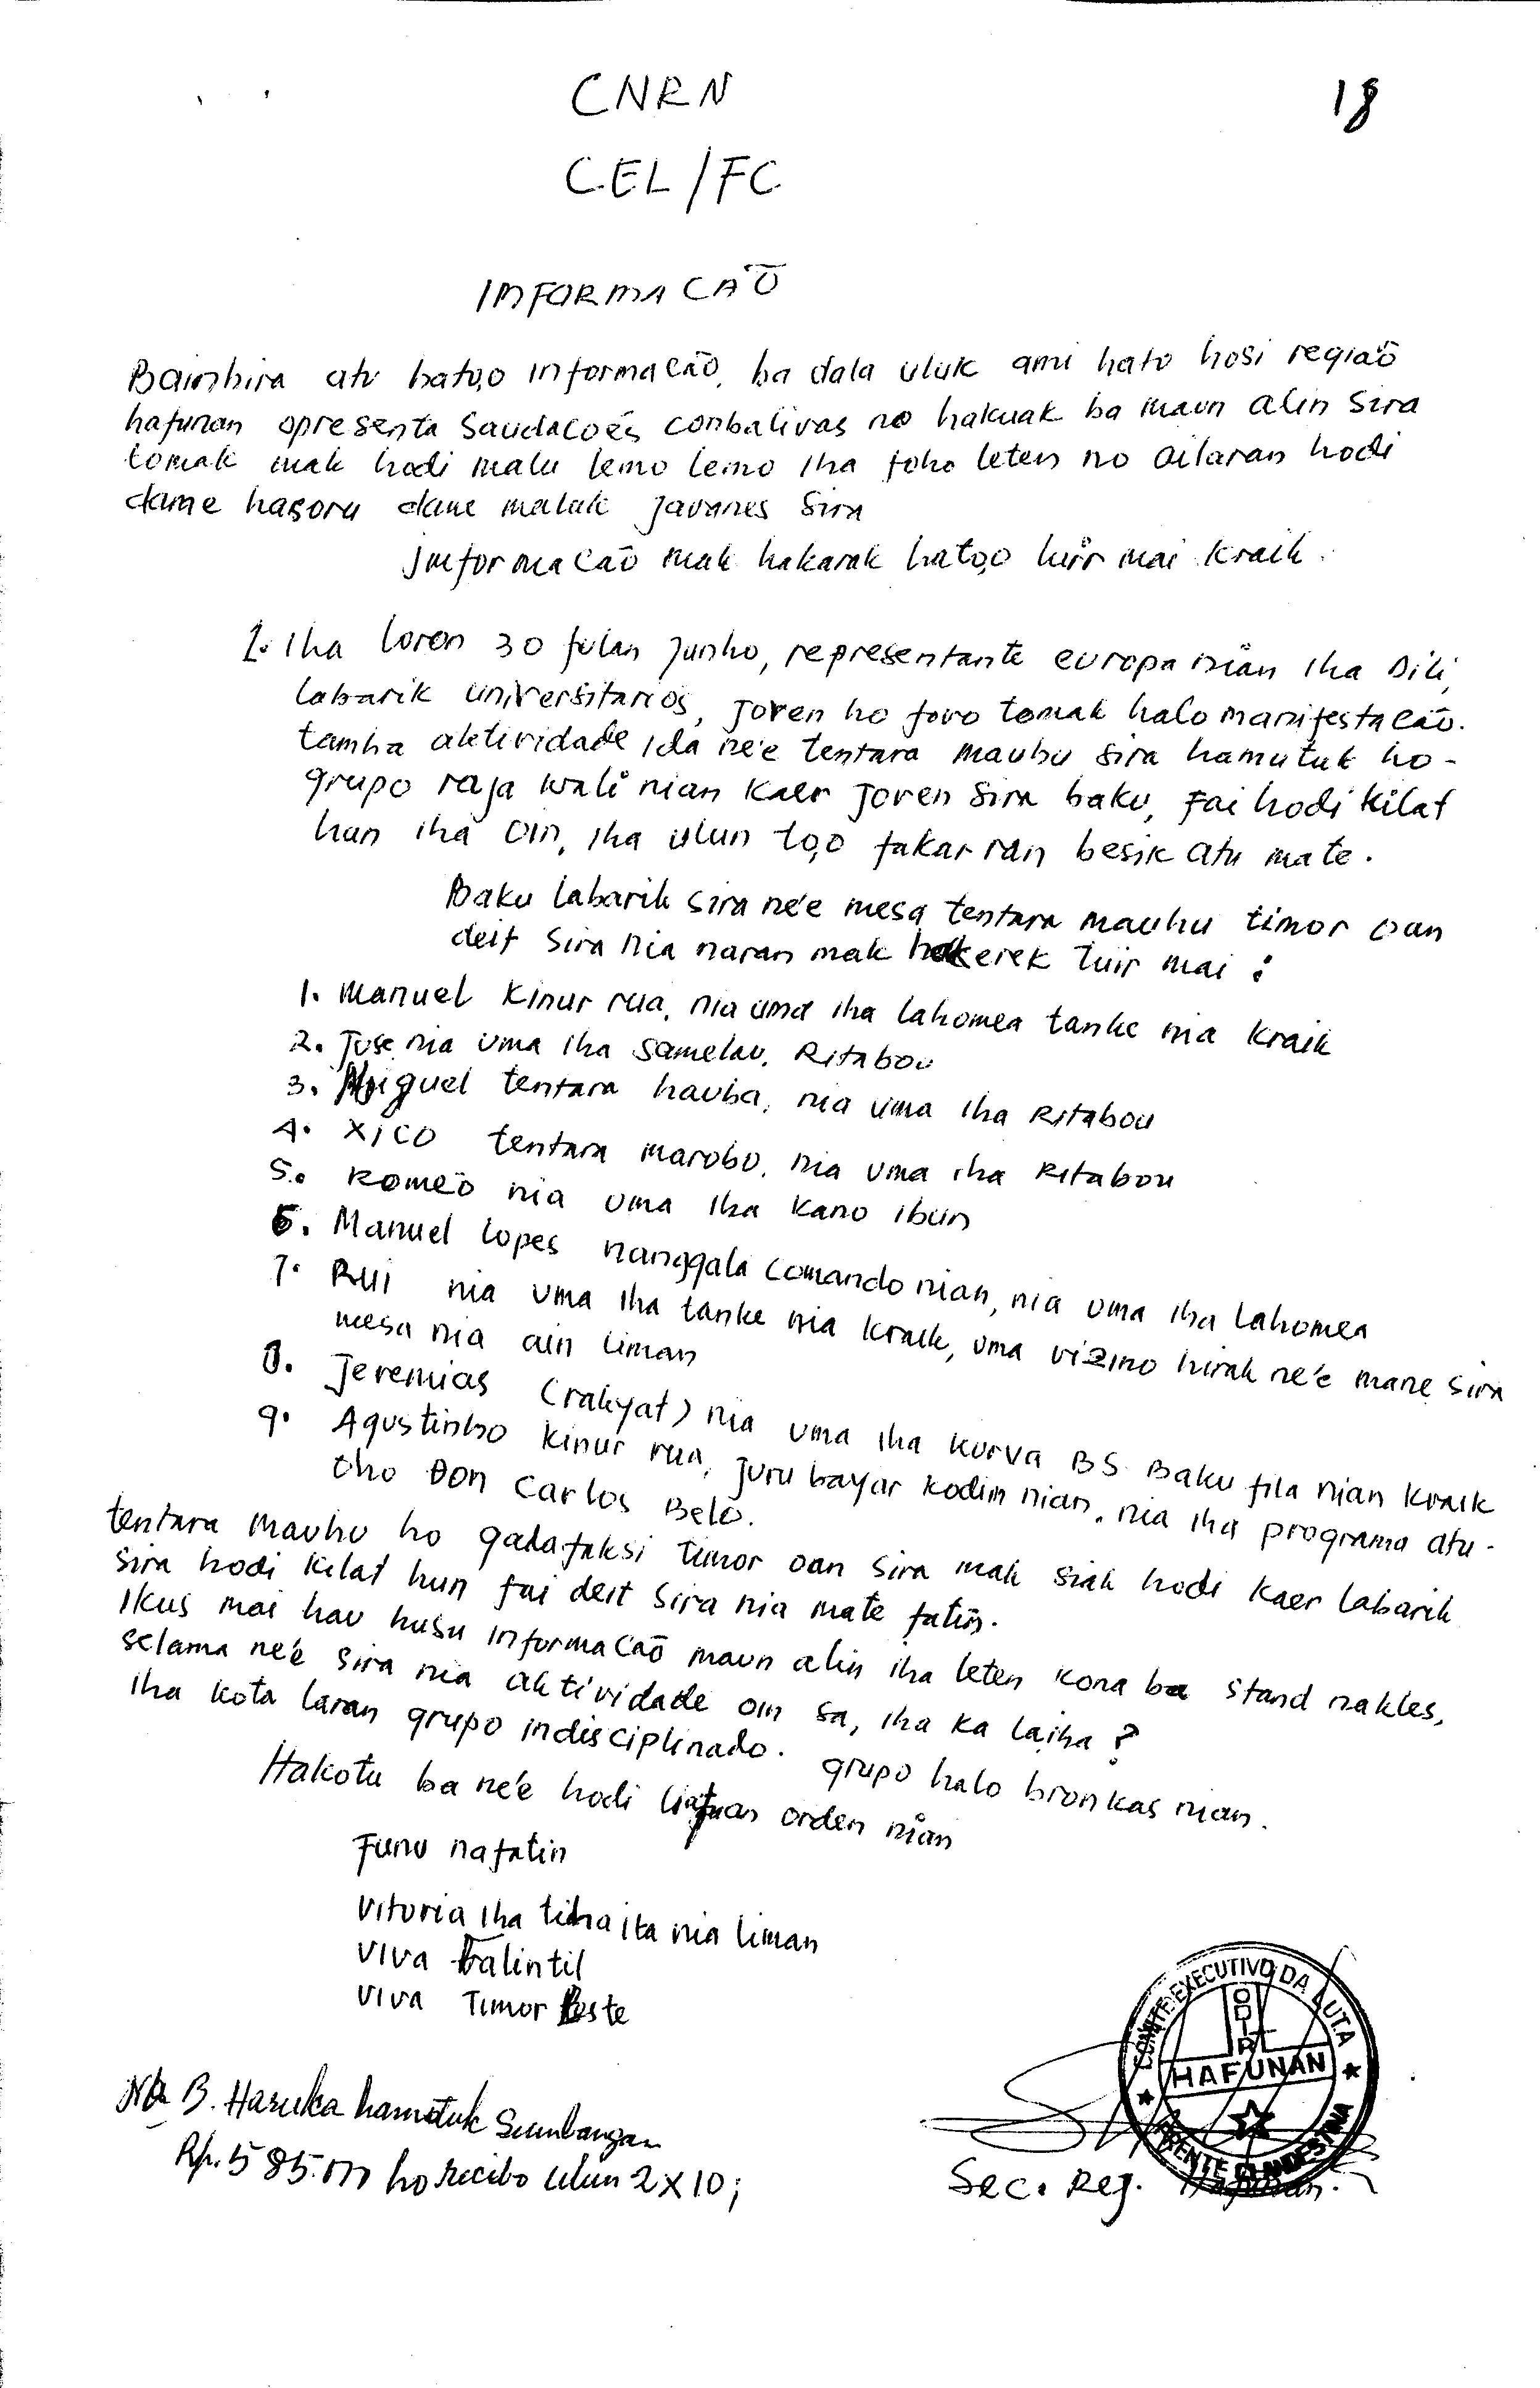 18
CNRN
CEL/FC
INFORMACAÕ
Bainhira atu hato,o informacaõ, ba dala uluk ami hato hosi regiaõ
hafunan apresenta Saudacoẽs conbativas no hakuak ba maun alin sira
tomak mak hodi malu lemo lemo iha foho leten no ailaran hodi
dame hasoru dame maluk javanes sira
informacaõ mak hakarak hato,o tuir mai kraik.
1. Iha loron 30 fulan Junho, representante europa nian iha Dili,
labarik universitarios, joven ho fovo tomak halo manifestacaõ.
tamba aktividade ida ne'e tentara mauhu sira hamutuk ho -
grupo raja wali nian kaer joven sira baku, fai hodi kilat
hun iha oin, iha ulun to,o fakar ran besik atu mate.
Baku labarik sira ne'e mesa tentara mauhu timor oan
deit sira nia naran mak hakerek tuir mai :
1. Manuel kinur rua, nia uma iha lahomea tanke nia kraik
2. Juse nia uma iha samelau, Ritabou
3. Miguel tentara hauba, nia uma iha Ritabou
4. XICO tentara marobo, nia uma iha Ritabou
5. Romeõ nia uma iha kano ibun
6. Manuel lopes nanggala comando nian, nia uma iha lahomea
7. Rui nia uma iha tanke nia kraik, uma vizino hirak ne'e mane sira
mesa nia ain liman
8. Jeremias (rakyat) nia uma iha kurva BS Baku fila nian kraik
9. Agustinho kinur rua, juru bayar kodim nian, nia iha programa atu -
oho Don Carlos Belo.
tentara mauhu ho gadafaksi timor oan sira mak siak hodi kaer labarik
sira hodi kilat hun fai deit sira nia mate fatin.
Ikus mai hau husu informacaõ maun alin iha leten kona ba stand nakles,
selama ne'e sira nia aktividade oin sa, iha ka laiha ?
Iha kota laran grupo indisciplinado. grupo halo bronkas nian.
Hakotu ba ne'e hodi liafuan orden nian
Funu nafatin
Vitoria iha tiha ita nia liman
Viva Falintil
Viva Timor Leste
B. Haruka hamutuk Sumbangan
Rp. 585.m ho recibo ulun 2 X 10;
COMITE EXECUTIVO DA LUTA
ODIR
HAFUNAN
FRENTE CLANDESTINA
Sec. Reg. Hafunan.